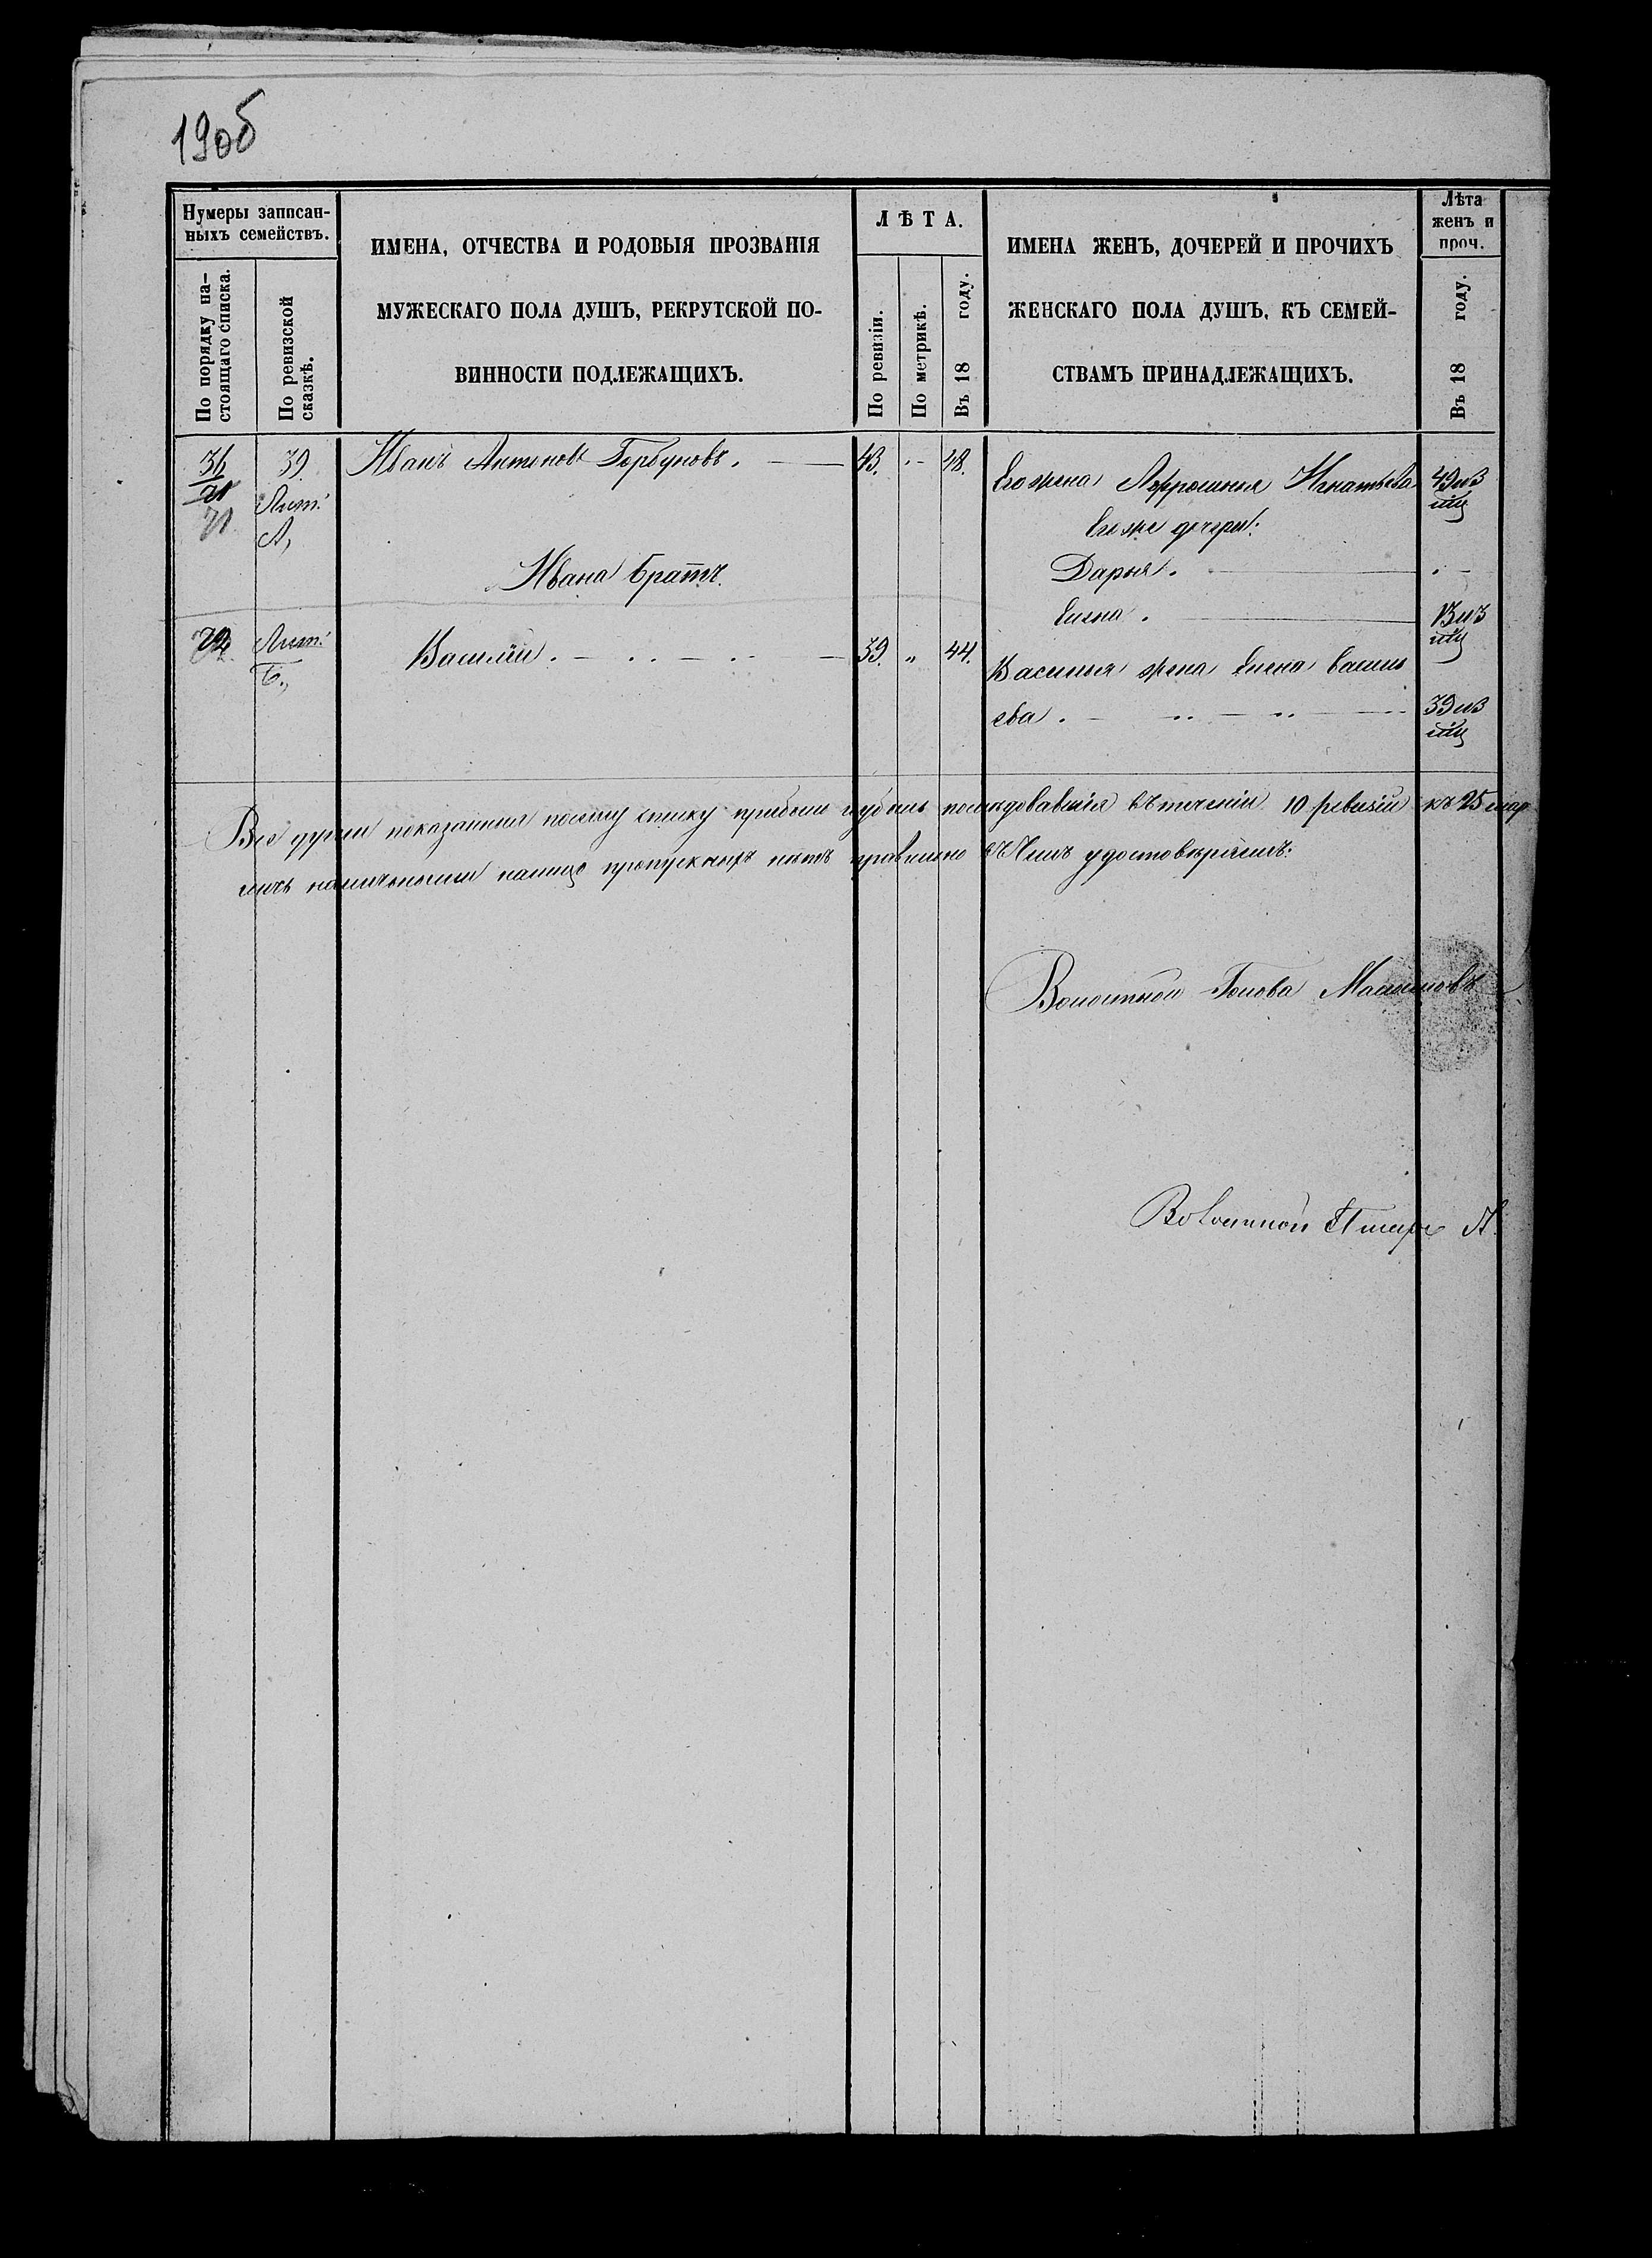 190б
Нумеры записан-
ныхъ семействъ.
По порядку на-
стоящаго списка.
По ревизской
сказкѣ.
ИМЕНА, ОТЧЕСТВА И РОДОВЫЯ ПРОЗВАНІЯ
МУЖЕСКАГО ПОЛА ДУШЪ, РЕКРУТСКОЙ ПО-
ВИННОСТИ ПОДЛЕЖАЩИХЪ.
ЛѢТА.
По ревизіи.
По метрикѣ.
Въ 18 году.
ИМЕНА ЖЕНЪ, ДОЧЕРЕЙ И ПРОЧИХЪ
ЖЕНСКАГО ПОЛА ДУШЪ, КЪ СЕМЕЙ-
СТВАМЪ ПРИНАДЛЕЖАЩИХЪ.
Лѣта
женъ и
проч.
Въ 18 году.
36 39. Иванъ Антоновъ Горбуновъ. 43. 48. Его жена Афросинья Игнатьева 49
71 Лит:
А,
Его же дочери:
Ивана братъ
Дарья.
Елена. 13
Лит: Василій. 39. " 44.
Б.,
Василья жена Елена Василь
ева. 39
Все души показанныя по сему списку последовавшія въ теченіи 10 ревизіи къ 25
пропускныхъ нѣтъ правильно въ чемъ удостовѣряемъ:
Волостной Голова
Волостной Писарь А